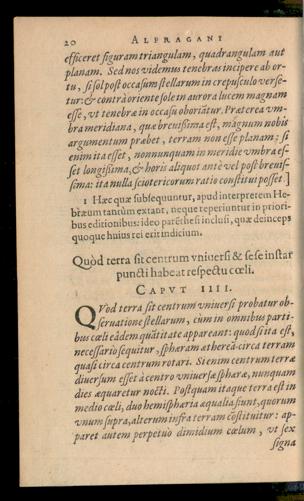 20 ALFRAGANI
efficeret figuram triangulam, quadrangulam aut
planam. Sed nos videmus tenebras incipere ab or-
tu, si sol post occasum stellarum in crepusculo verse-
tur: & contrà oriente sole in aurora lucem magnam
esse, vt tenebræ in occasu oboriātur. Præterea vm-
bra meridiana, quæ breuißima est, magnum nobis
argumentum præbet, terram non esse planam: si
enim ita esset, nonnunquam in meridie vmbra es-
set longißima, & horis aliquot antè vel pòst breuis-
sima: ita nulla sciotericorum ratio constitui posset.]
1 Hæc quæ subsequuntur, apud interpretem He-
bræum tantùm extant, neque reperiuntur in priori-
bus editionibus: ideo parēthesi inclusi, quæ deinceps
quoque huius rei erit indicium.
Quòd terra sit centrum vniuersi & sese instar
puncti habeat respectu cœli.
CAPVT IIII.
QVod terra sit centrum vniuersi probatur ob-
seruatione stellarum, cùm in omnibus parti-
bus cœli eâdem quātitate appareant: quod si ita est,
necessariò sequitur, sphæram ætheream circa terram
quasi circa centrum rotari. Si enim centrum terræ
diuersum esset à centro vniuersæ sphæræ, nunquam
dies æquaretur nocti. Postquam itaque terra est in
medio cœli, duo hemisphæria æqualia fiunt, quorum
vnum supra, alterum infra terram cōstituitur: ap-
paret autem perpetuò dimidium cœlum, vt sex
signa